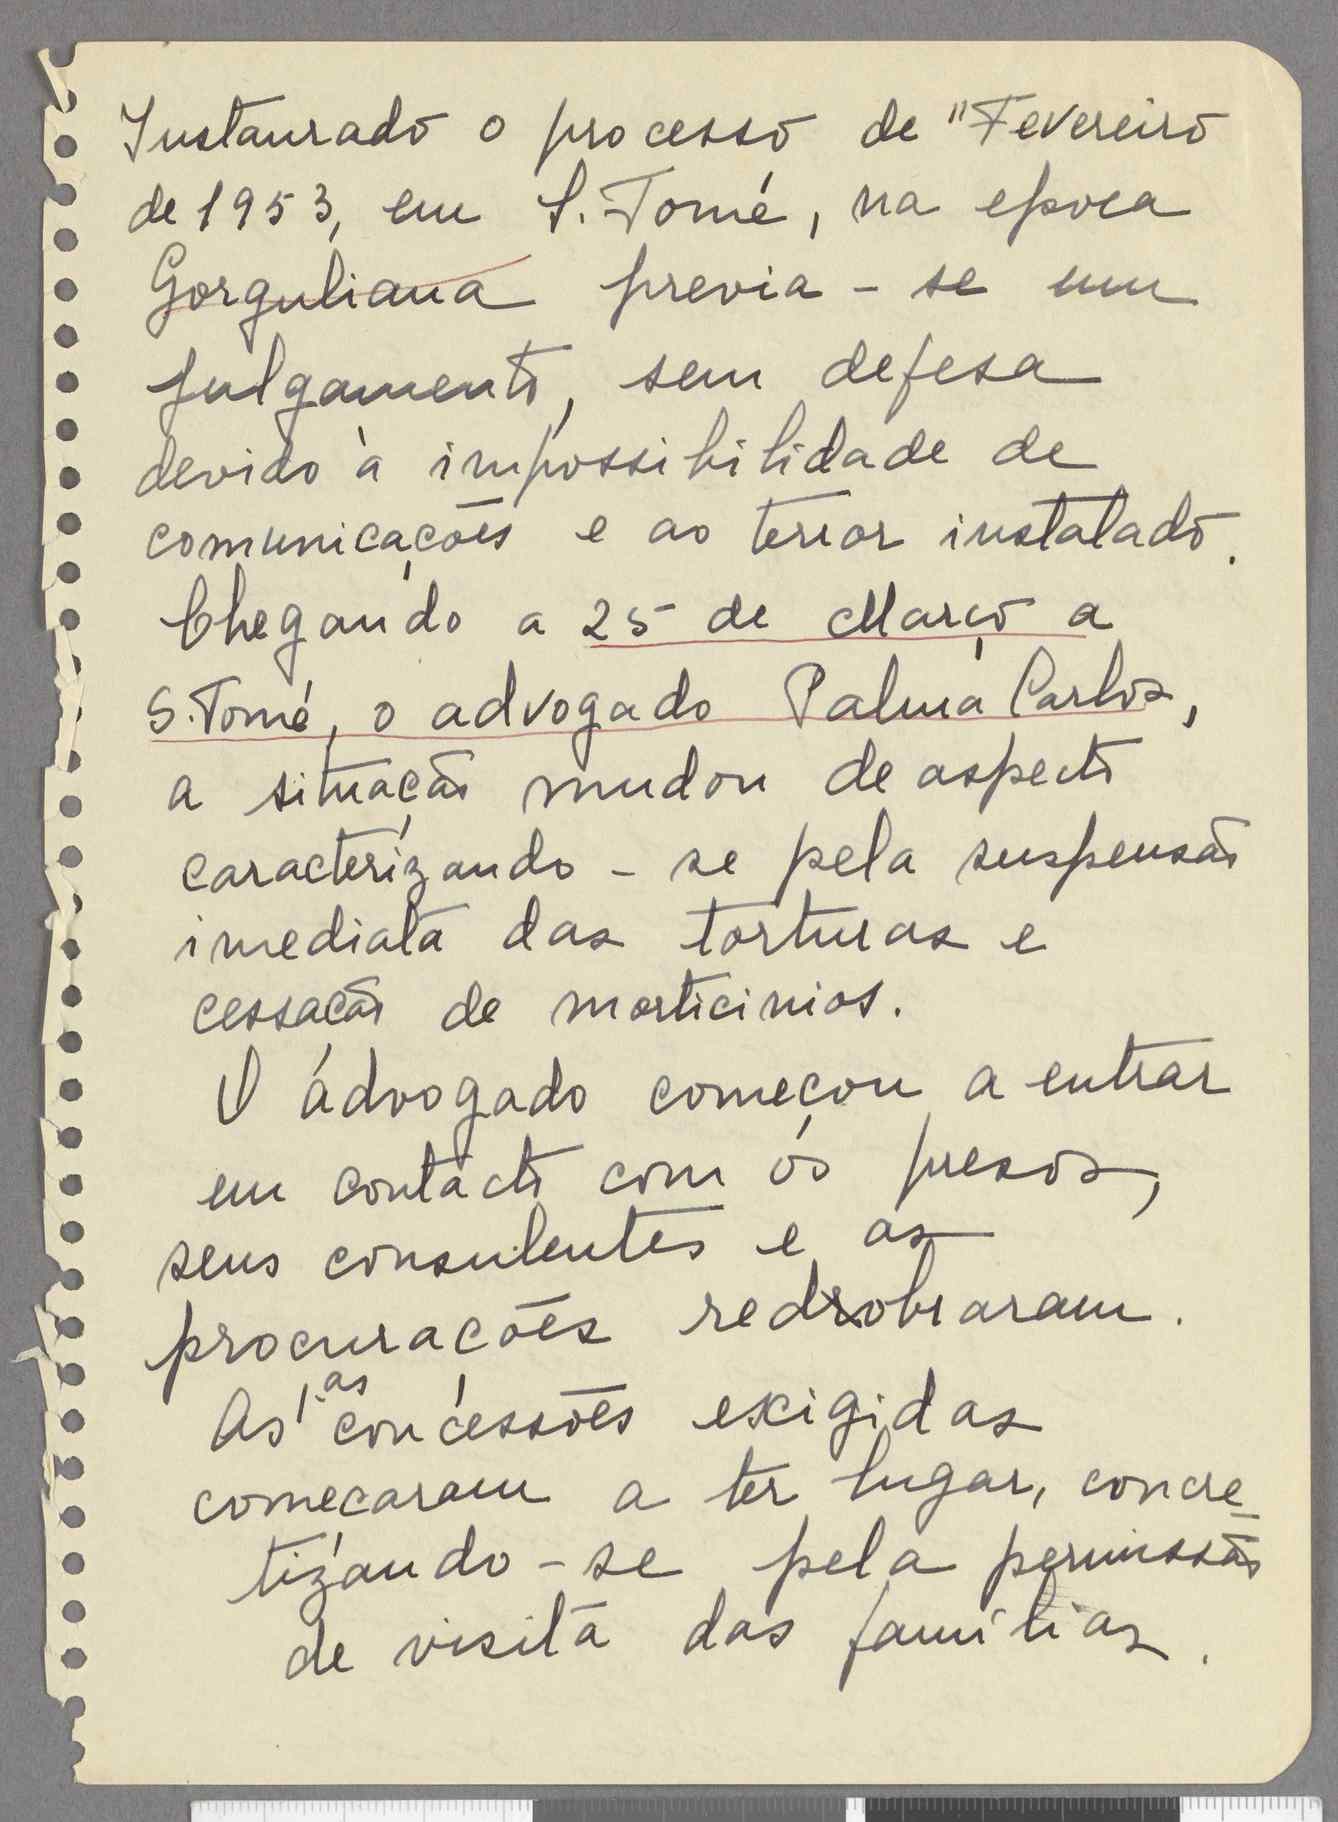 Instaurado o processo de "Fevereiro
de 1953, em S. Tomé, na epoca
Gorguliana previa-se um
julgamento, sem defesa
devido à impossibilidade de
comunicações e ao terror instalado.
Chegando a 25 de Março a
S. Tomé, o advogado Palma Carlos,
a situação mudou de aspecto
caracterizando-se pela suspensão
imediata das torturas e
cessação de morticinios.
O advogado começou a entrar
em contacto com os presos,
seus consulentes e as
procurações redobraram.
As 1.as concessões exigidas
comecaram a ter lugar, concre-
tizando-se pela permissão
de visita das famílias.